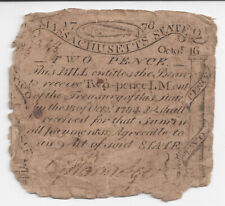 17 76
MASSACHUSETTS STATE
Octor 16
TWO PENCE
This BILL entitles the Bearer
to receive Two pence L M out
of the Treasury of this State
by the 18th of Octr 1784 & shall
received for that Sum in
all payments Agreeable to
an Act of said STATE